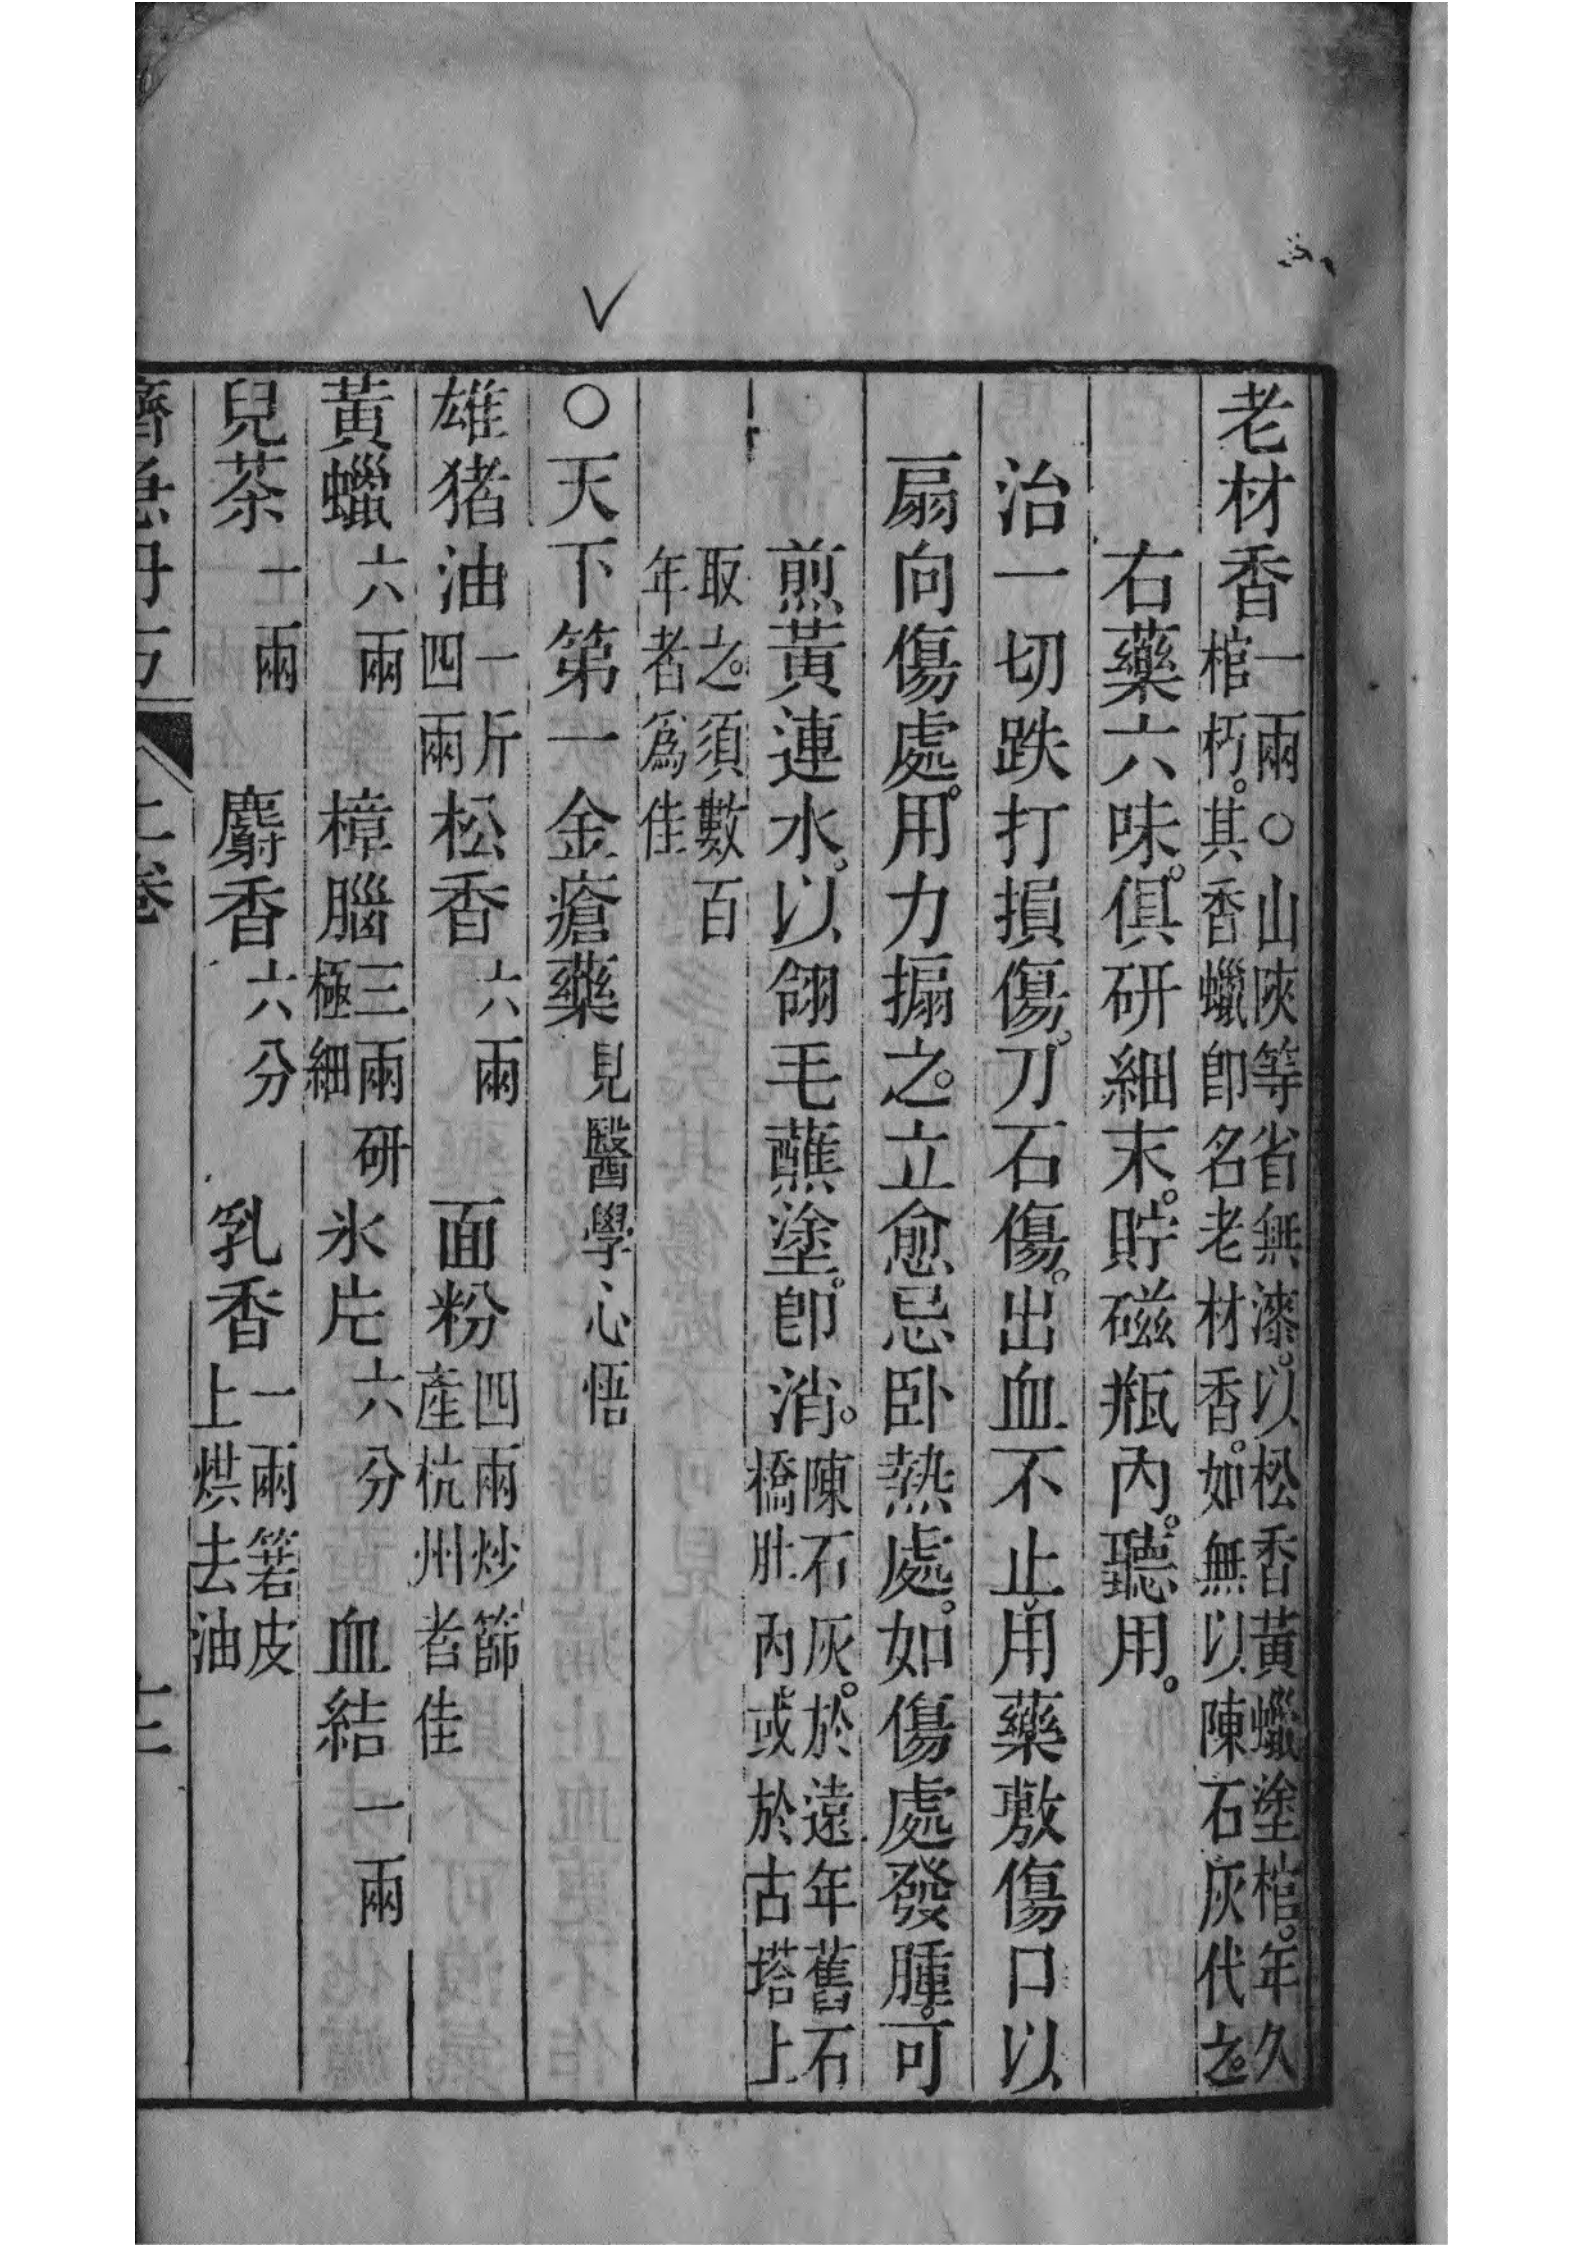 老材香一兩○山陝等省無漆。以松香黃蠟塗棺。年久棺朽。其香蠟卽名老材香。如無以陳石灰代之。
右藥六味。俱研細末。貯磁瓶內。聽用。
治一切跌打損傷。刀石傷。出血不止。用藥敷傷口以
扇向傷處。用力搧之。立愈忌卧熱處。如傷處發腫。可
煎黃連水。以翎毛蘸塗。卽消。陳石灰。於遠年舊石橋肚內。或於古塔上
取之。須數百年者爲佳
○天下第一金瘡藥見醫學心悟
雄猪油一斤四兩 松香六兩 面粉四兩炒篩產杭州者佳
黃蠟六兩 樟腦三兩研極細 氷片六分 血結一兩
兒茶一兩 麝香六分 乳香一兩箬皮上烘去油